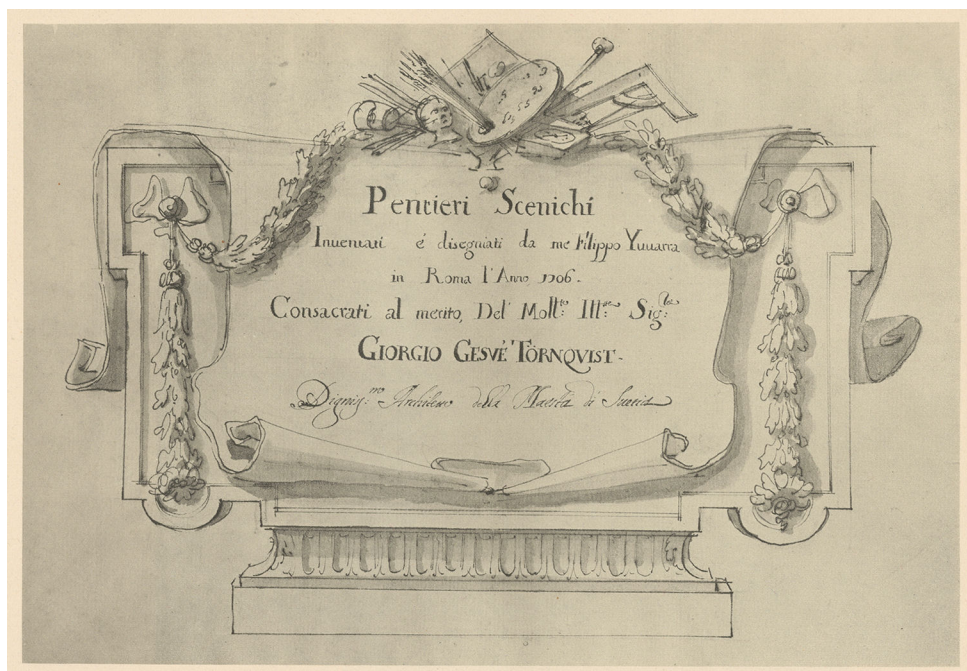 Pencieri Scenichi
Inuentati é disegniati da me Filippo Yuuarra
in Roma l'Anno 1706.
Consacrati al merito, Del Mollto: Ill:re Sig:re
GIORGIO GESVÉ TÖRNQVIST.
Dignis:mo Architetto della Maestà di Suecia